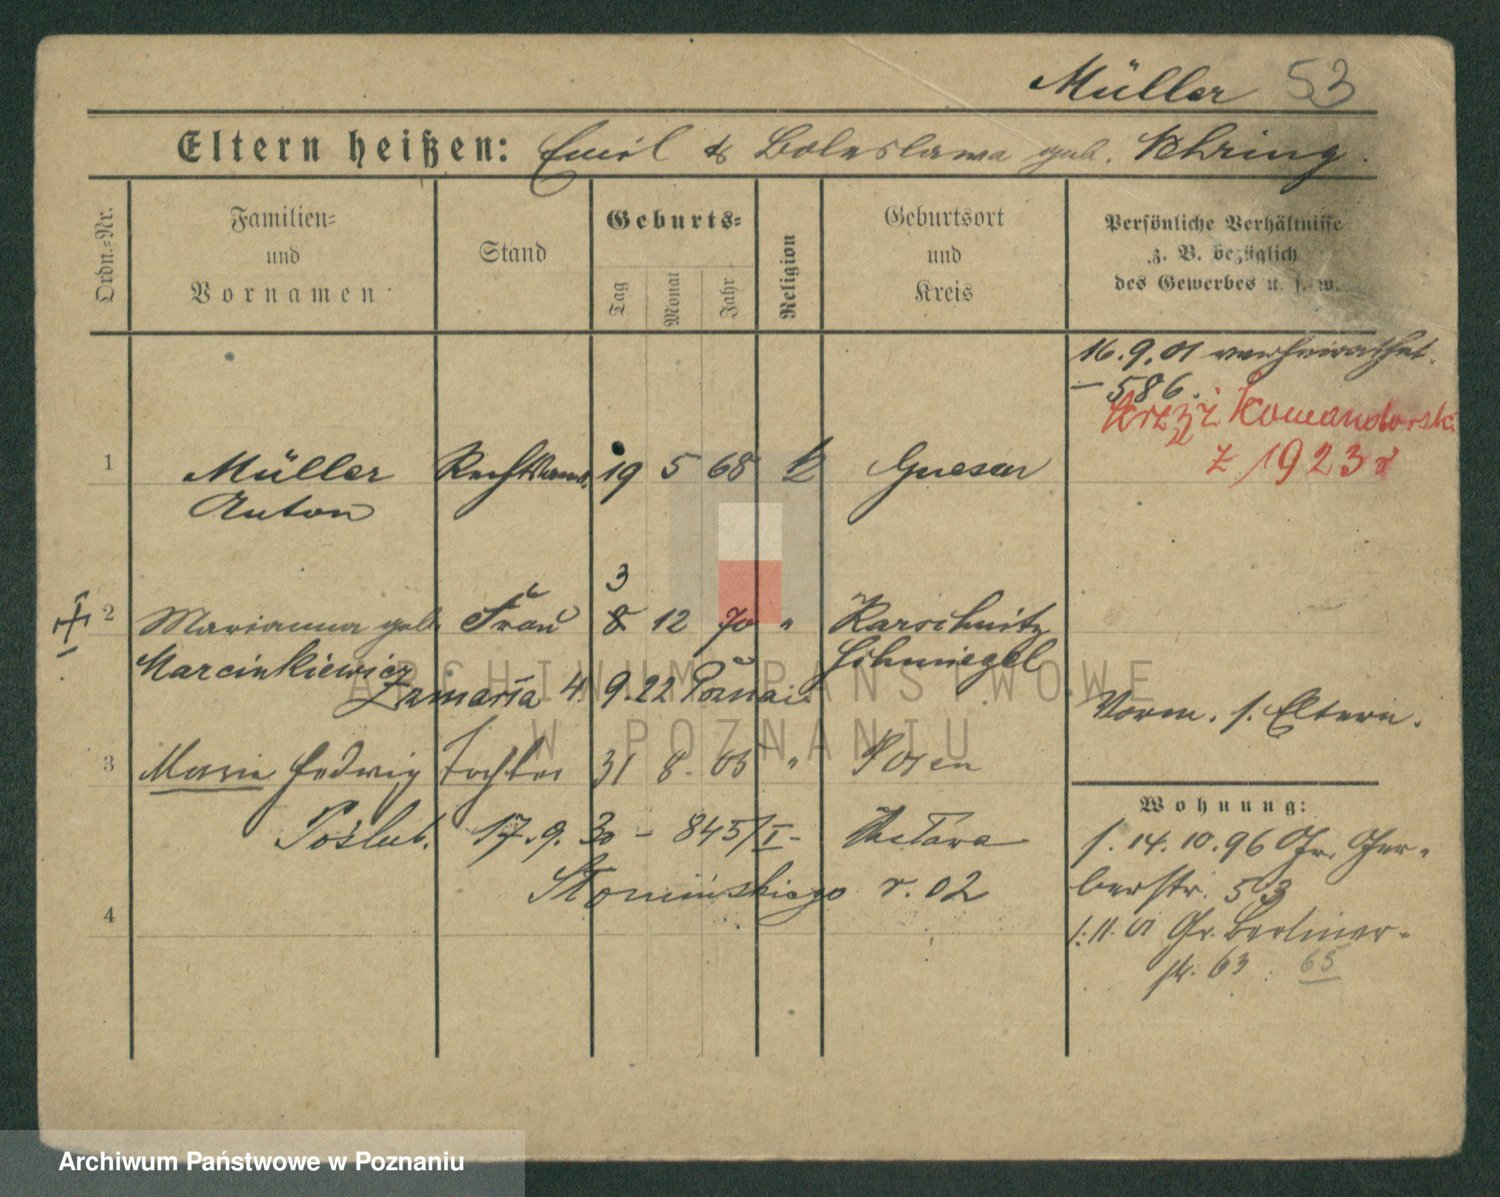 Müller 53
Eltern heißen: Emil & Boleslawa geb. Nehring.
Ordn.=Nr.
Familien=
und
Vornamen
Stand
Geburts=
Tag
Monat
Jahr
Religion
Geburtsort
und
Kreis
Persönliche Verhältnisse
z. B. bezüglich
des Gewerbes u. s. w.
16.9.01 verheirathet.
– 586.
Krzyż Komandorski
z 1923 r
1 Müller 19 5 68 k Gnesen
Anton
3
2 Marianna geb. Frau 8 12 70 " Karschnitz
Marcinkiewicz Schmiegel
Zmarła 4. 9. 22 Poznań.
Vorm. s. Eltern.
3 Marie Hedwig Tochter 31 8. 03 " Posen
Poślub. 17. 9. 30 – 845/I –
Słomińskiego r. 02
4
Wohnung:
s. 14. 10. 96 Gr. Ger-
berstr. 53
1. 11. 01 Gr. Berliner-
str. 63 65
ARCHIWUM PAŃSTWOWE
W POZNANIU
Archiwum Państwowe w Poznaniu